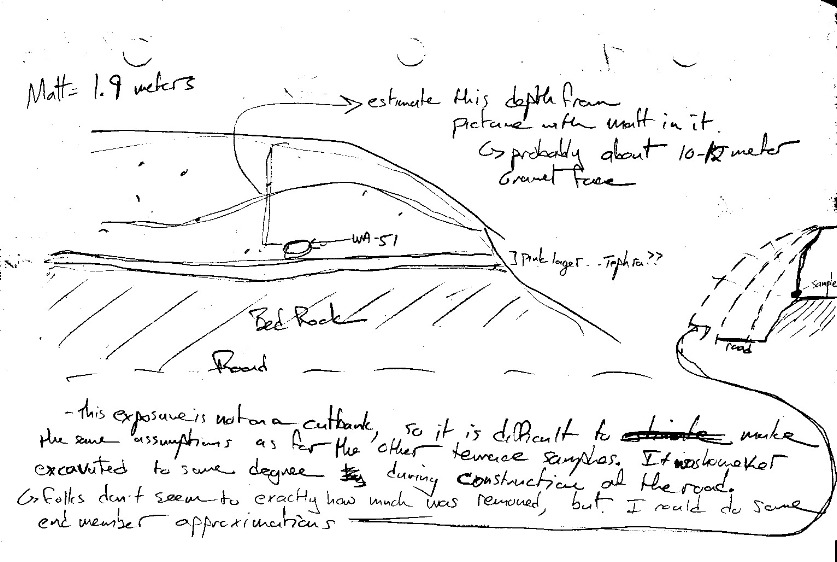 Matt = 1.9 meters
estimate this depth from
picture with matt in it.
↳ probably about 10-12 meter
Gravel face
WA-51
] Pink layer... Tephra??
sample
road
Bed Rock
Road
- this exposure is not on a cutbank, so it is difficult to make
the same assumptions as for the other terrace samples. It was however
excavated to some degree during construction of the road.
↳ Folks don't seem to exactly how much was removed, but I could do some
end member approximations